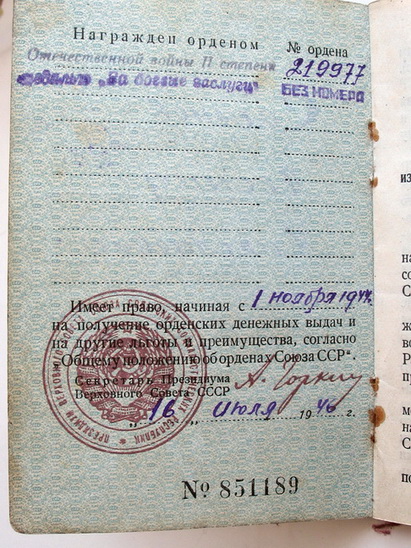 Награжден орденом № ордена
Отечественной войны II степени 219977
медалью „За боевые заслуги" БЕЗ НОМЕРА
Имеет право, начиная с 1 ноября 1944г.
на получение орденских денежных выдач и
на другие льготы и преимущества, согласно
„Общему положению об орденах Союза ССР".
Секретарь Президиума
Верховного Совета СССР А. Горкин
„16 „ Июля 1946 г.
№ 851189